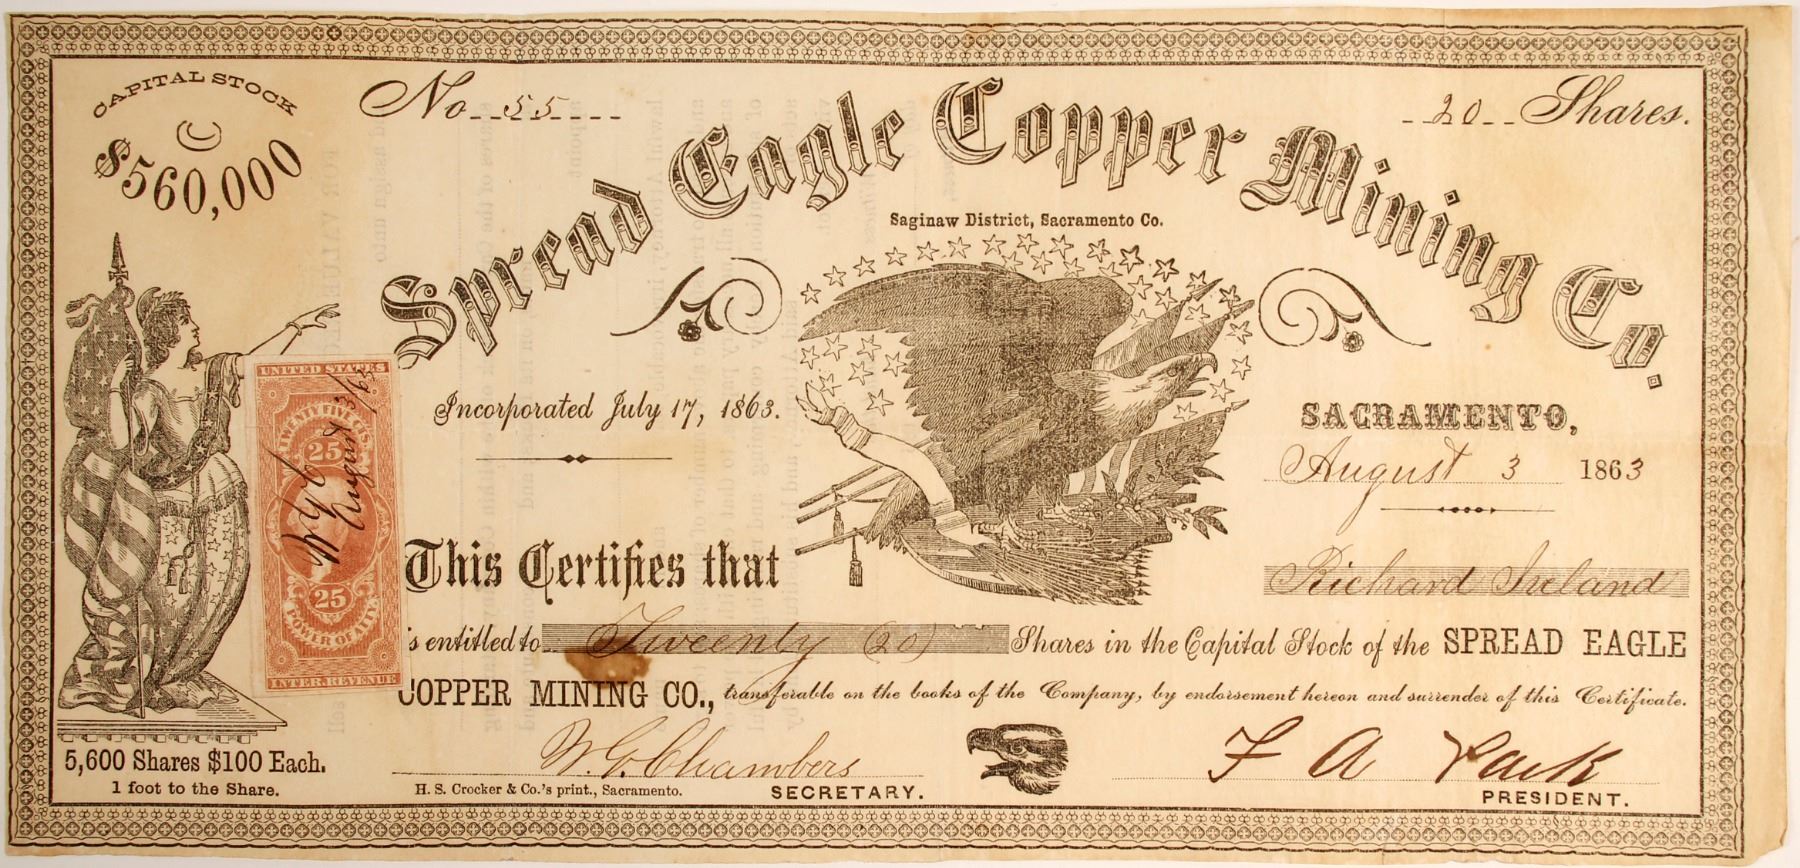 CAPITAL STOCK
$560,000
No. 55
20 Shares.
Spread Eagle Copper Mining Co.
Saginaw District, Sacramento Co.
Incorporated July 17, 1863.
SACRAMENTO,
August 3 1863
UNITED STATES
TWENTY FIVE CTS
25
25
POWER OF AT'Y
INTER. REVENUE
This Certifies that Richard Ireland
is entitled to Tweenty (20) Shares in the Capital Stock of the SPREAD EAGLE
COPPER MINING CO., transferable on the books of the Company, by endorsement hereon and surrender of this Certificate.
5,600 Shares $100 Each.
1 foot to the Share.
W. G. Chambers
H. S. Crocker & Co.'s print., Sacramento.
SECRETARY.
F A
PRESIDENT.